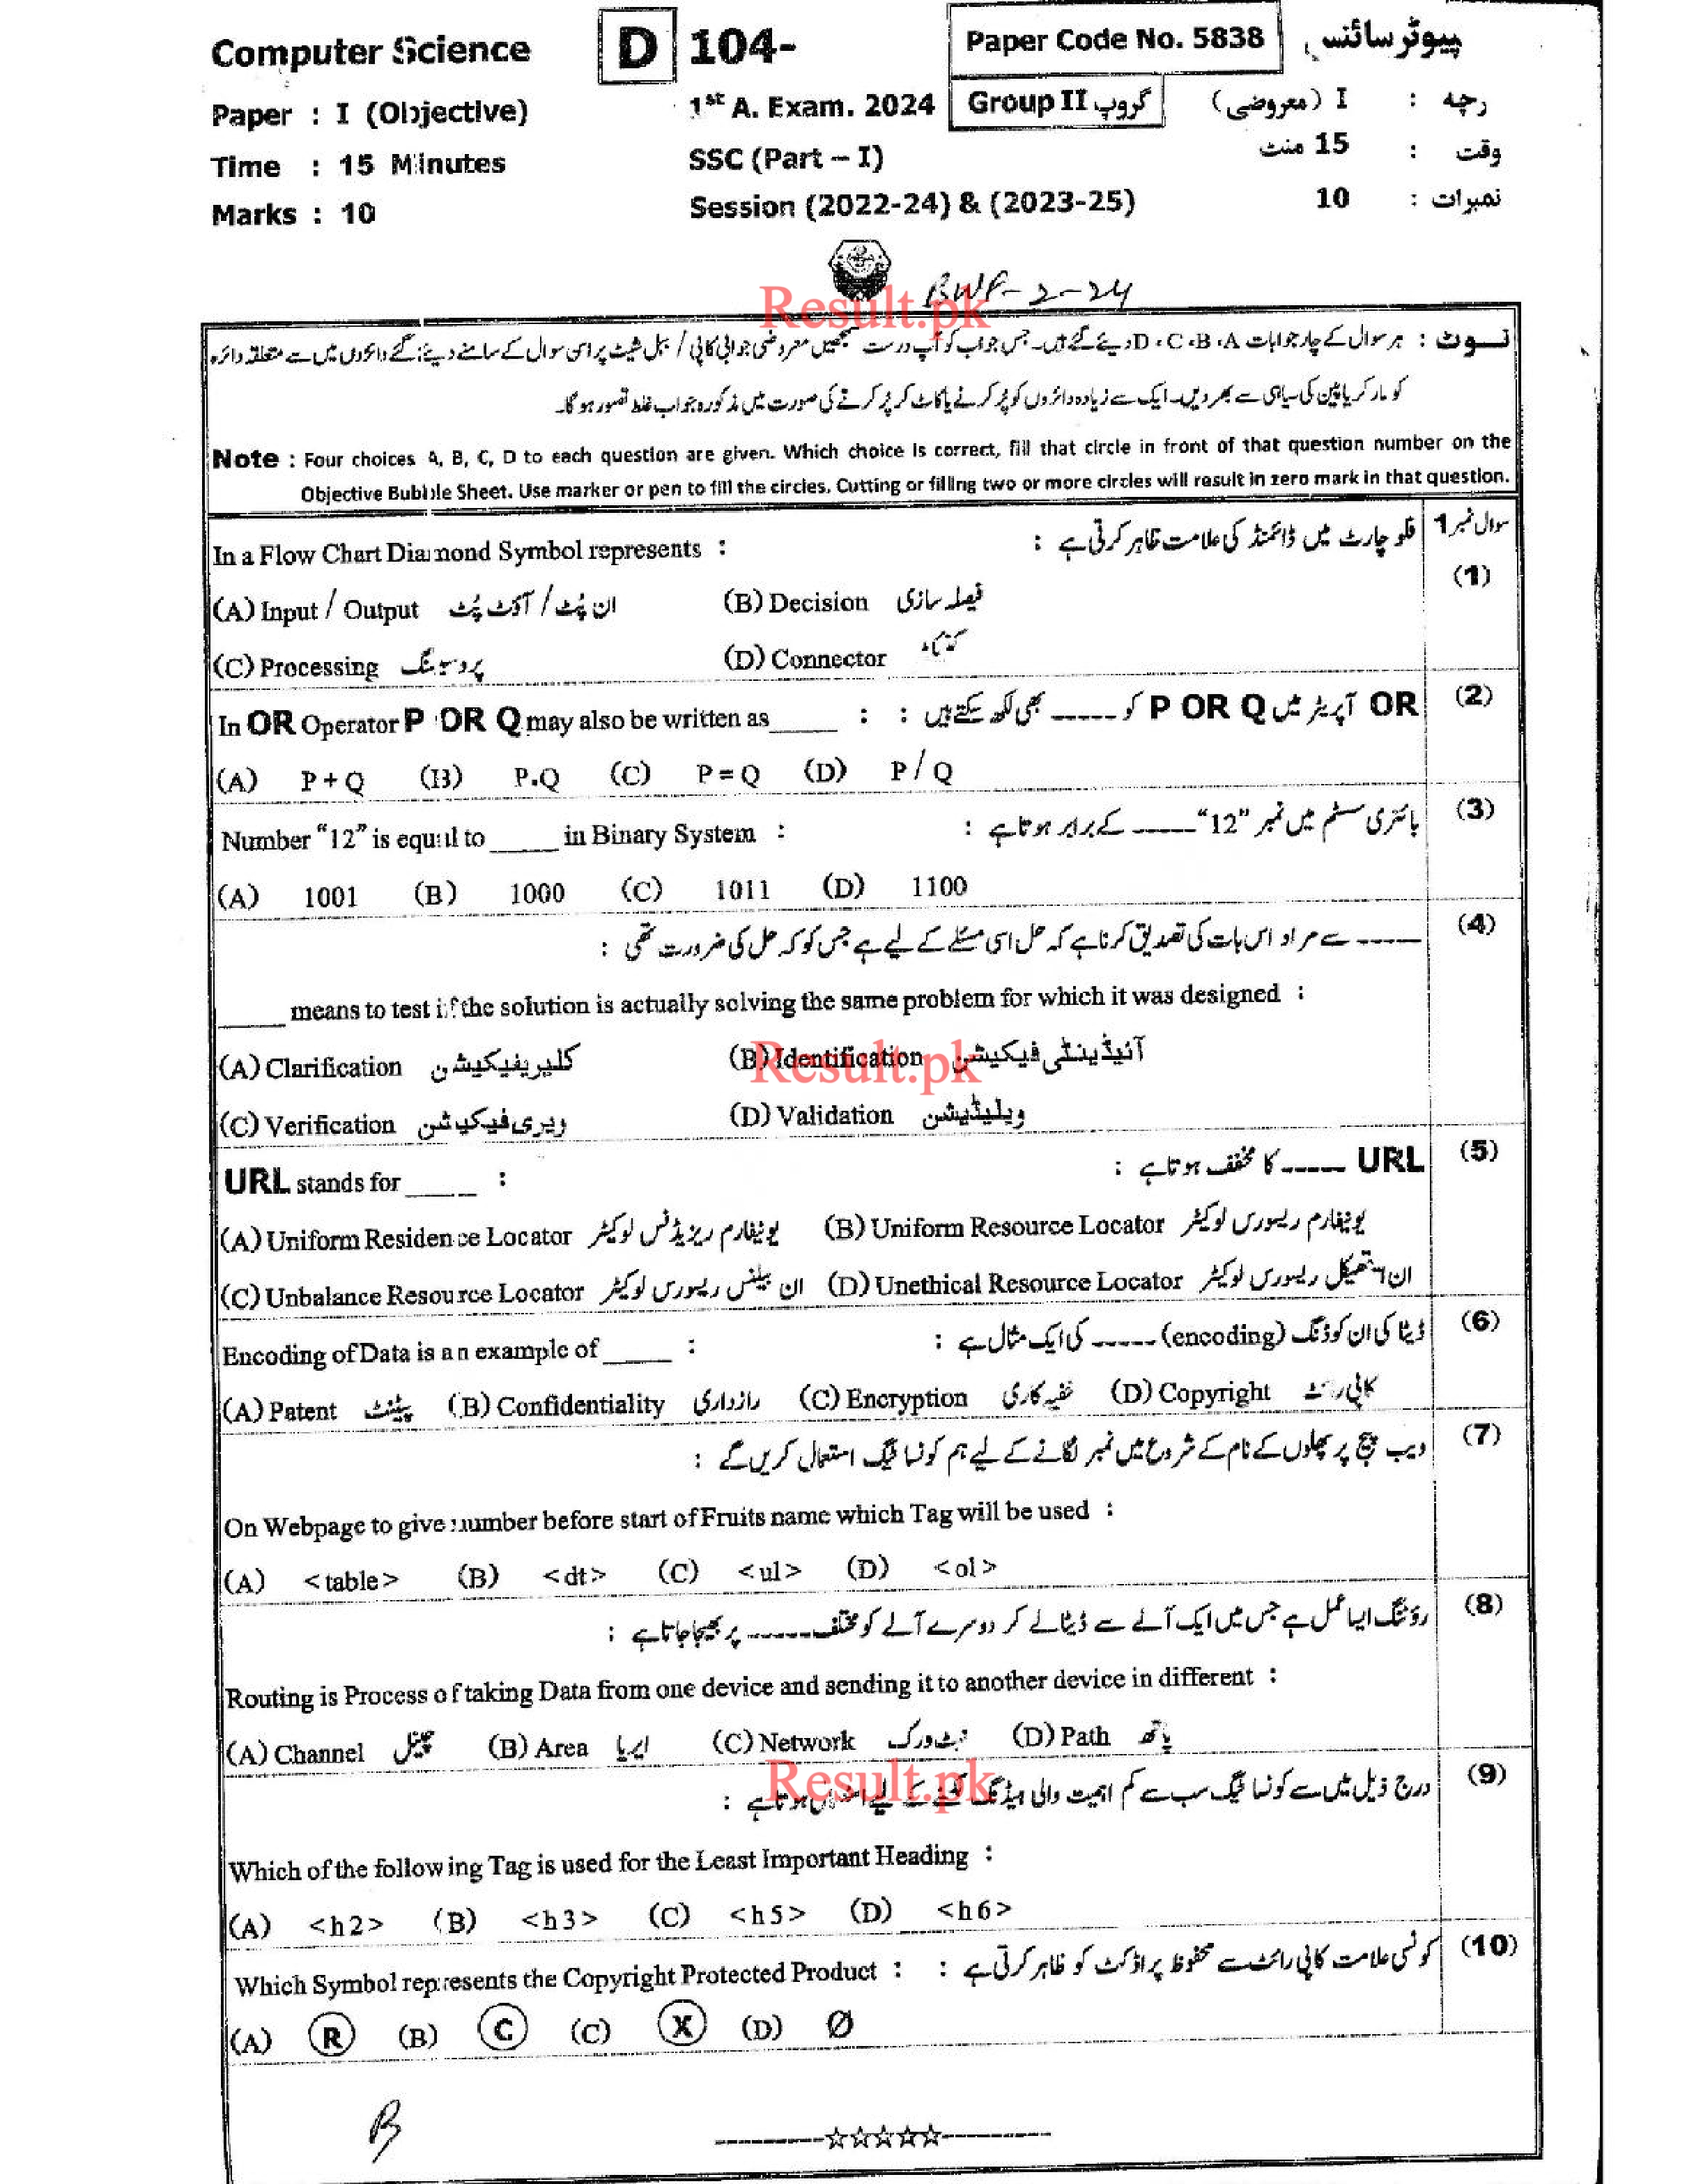 Computer Science D 104- Paper Code No. 5838 پیوٹر سائنس
Paper : I (Objective) 1st A. Exam. 2024 Group II گروپ I (معروضی) : رچہ
Time : 15 Minutes SSC (Part – I) 15 منٹ : وقت
Marks : 10 Session (2022-24) & (2023-25) 10 : نمبرات
BWP-2-24
Result.pk
نوٹ : ہر سوال کے چار جوابات D ، C ، B ، A دیئے گئے ہیں۔ جس جواب کو آپ درست سمجھیں معروضی جوابی کاپی / ببل شیٹ پر اس سوال کے سامنے دیئے گئے دائروں میں سے متعلقہ دائرہ
کو مارکر یا پین کی سیاہی سے بھر دیں۔ ایک سے زیادہ دائروں کو پُر کرنے یا کاٹ کر پُر کرنے کی صورت میں مذکورہ جواب غلط تصور ہو گا۔
Note : Four choices A, B, C, D to each question are given. Which choice is correct, fill that circle in front of that question number on the
Objective Bubble Sheet. Use marker or pen to fill the circles. Cutting or filling two or more circles will result in zero mark in that question.
سوال نمبر 1
In a Flow Chart Diamond Symbol represents : فلو چارٹ میں ڈائمنڈ کی علامت ظاہر کرتی ہے : (1)
(A) Input / Output ان پُٹ / آؤٹ پُٹ (B) Decision فیصلہ سازی
(C) Processing پروسیسنگ (D) Connector
In OR Operator P OR Q may also be written as _____ : OR آپریٹر میں P OR Q کو ----- بھی لکھ سکتے ہیں : (2)
(A) P + Q (B) P.Q (C) P = Q (D) P / Q
Number “12” is equal to _____ in Binary System : بائنری سسٹم میں نمبر “12” ----- کے برابر ہوتا ہے : (3)
(A) 1001 (B) 1000 (C) 1011 (D) 1100
----- سے مراد اس بات کی تصدیق کرنا ہے کہ حل اسی مسئلے کے لیے ہے جس کو کہ حل کی ضرورت تھی : (4)
_____ means to test if the solution is actually solving the same problem for which it was designed :
(A) Clarification کلیریفیکیشن (B) Identification آئیڈینٹی فیکیشن
Result.pk
(C) Verification ویری فیکیشن (D) Validation ویلیڈیشن
URL stands for _____ : URL ----- کا مخفف ہوتا ہے : (5)
(A) Uniform Residence Locator یونیفارم ریزیڈنس لوکیٹر (B) Uniform Resource Locator یونیفارم ریسورس لوکیٹر
(C) Unbalance Resource Locator ان بیلنس ریسورس لوکیٹر (D) Unethical Resource Locator ان ایتھیکل ریسورس لوکیٹر
Encoding of Data is an example of _____ : ڈیٹا کی ان کوڈنگ (encoding) ----- کی ایک مثال ہے : (6)
(A) Patent پیٹنٹ (B) Confidentiality رازداری (C) Encryption خفیہ کاری (D) Copyright کاپی رائٹ
ویب پیج پر پھلوں کے نام کے شروع میں نمبر لگانے کے لیے ہم کونسا ٹیگ استعمال کریں گے : (7)
On Webpage to give number before start of Fruits name which Tag will be used :
(A) <table> (B) <dt> (C) <ul> (D) <ol>
روٹنگ ایسا عمل ہے جس میں ایک آلے سے ڈیٹا لے کر دوسرے آلے کو مختلف ----- پر بھیجا جاتا ہے : (8)
Routing is Process of taking Data from one device and sending it to another device in different :
(A) Channel چینل (B) Area ایریا (C) Network نیٹ ورک (D) Path پاتھ
Result.pk
درج ذیل میں سے کونسا ٹیگ سب سے کم اہمیت والی ہیڈنگ کے لیے ہوتا ہے : (9)
Which of the following Tag is used for the Least Important Heading :
(A) <h2> (B) <h3> (C) <h5> (D) <h6>
Which Symbol represents the Copyright Protected Product : کونسی علامت کاپی رائٹ سے محفوظ پراڈکٹ کو ظاہر کرتی ہے : (10)
(A) Ⓡ (B) Ⓒ (C) Ⓧ (D) Ø
B
----------☆☆☆☆☆----------